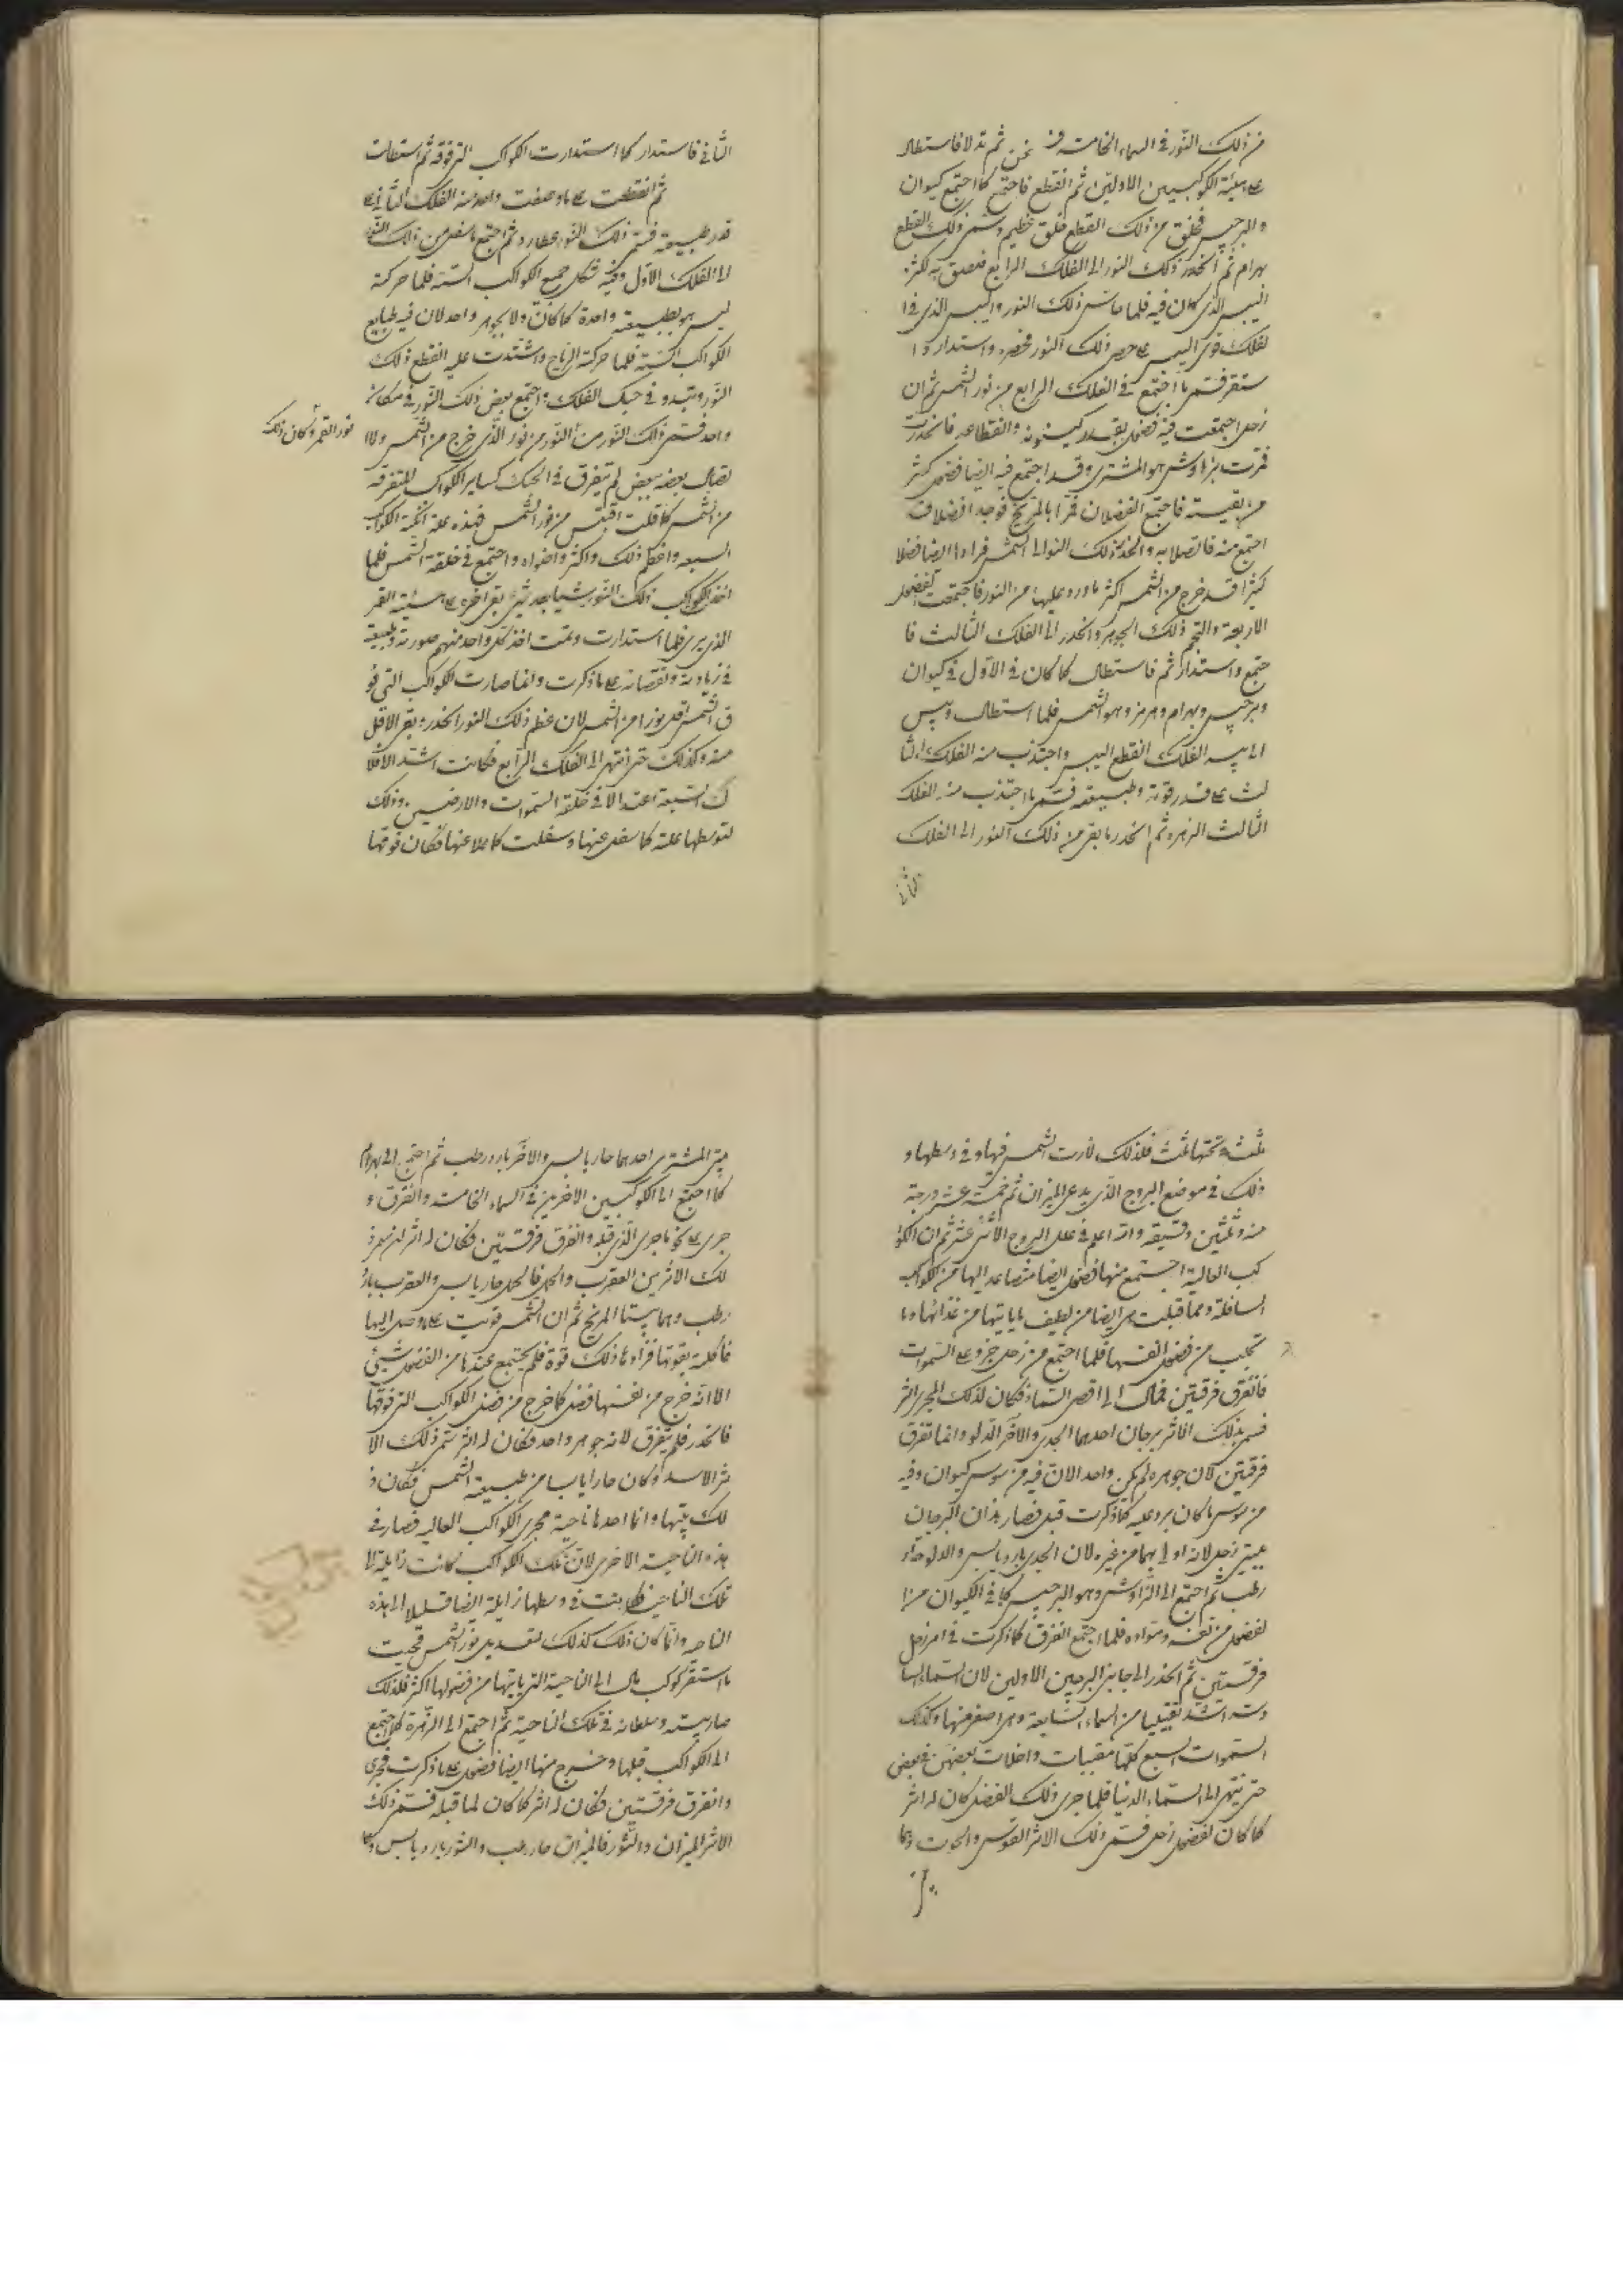 من ذلك النور في السماء الخامسة ثم تدلا فاستطال
على هيئة الكوكبين الاولين ثم انقطع فاجتمع كما اجتمع كيوان
والبرجيس فخلق من ذلك القطع خلق عظيم وسمى ذلك القطع
بهرام ثم انحدر ذلك النور الى الفلك الرابع فلصق به لكثرة
اليبس الذي كان فيه فلما ماس ذلك النور واليبس الذي في ا
لفلك قوى اليبس على حصر ذلك النور فحصره واستدار وا
ستقر فسمى ما اجتمع في الفلك الرابع من نور الشمس ثم ان
زحل اجتمعت فيه فضول بقدر كينونته وانقطاعه فانحدرت
فمرت بزاوش هو المشترى وقد اجتمع فيه ايضا فضول كثير
من بقيته فاجتمع الفضلان فمرا بالمريخ فوجدا فضلا قد
اجتمع منه فاتصلا به وانحدر ذلك النور الى الشمس فرادها ايضا فضلا
كثيرا قد خرج من الشمس اكثر ما ورد عليها من النور فاجتمعت الفضول
الاربعة والتجم ذلك الجوهر وانحدر الى الفلك الثالث فا
جتمع واستدار ثم فاستطال كما كان في الاول في كيوان
وبرجيس وبهرام وهرمز وهو الشمس فلما استطال ويبس
الى يبس الفلك انقطع اليبس واجتذب منه الفلك الثا
لث على قدر قوته وطبيعته فسمى ما اجتذب منه الفلك
الثالث الزهرة ثم انحدر ما بقى من ذلك النور الى الفلك
الثاني
الثاني فاستدار كما استدارت الكواكب التي فوقه ثم استطالت
ثم انقطعت على ما وصفت واحد منه الفلك الثاني على
قدر طبيعته فسمى ذلك النور عطارد ثم اجتمع ما سفل من ذلك النور
الى الفلك الاول وفيه شكل جميع الكواكب الستة فلما حركته
ليس هو بطبيعة واحدة كما كان ولا بجوهر واحد لان فيه طبايع
الكواكب الستة فلما حركته الرياح واشتدت عليه انقطع ذلك
النور وتبدو في حبك الفلك ما اجتمع بعض ذلك النور في مكان
واحد فسمى ذلك النور من النور من نور الذي خرج من الشمس ولا ا
نور القمر وكان ذلك
تصال بعضه ببعض لم يتفرق في الحبك كساير الكواكب المتفرقة
من الشمس كما قلت اقتبس من نور الشمس فهذه علة انجمة الكواكب
السبعة واحكم ذلك واكثر واضواء واجتمع في خلقة الشمس فلما
اخذ الكواكب ذلك النور شيئا بعد شيء بقى اخره على هيئة القمر
الذي يرى فلما استدارت وتمت اخذ كل واحد منهم صورته وطبيعته
في زيادته ونقصانه على ما ذكرت وانما صارت الكواكب التي فو
ق الشمس اقل نورا من الشمس لان عظم ذلك النور انحدر وبقى الاقل
منه وكذلك حتى انتهى الى الفلك الرابع فكانت اشد الافلا
ك السبعة اعتدالا في خلقة السموات والارضين وذلك
لتوسطها علة كما سفل عنها وسفلت كما علا عنها فكان فوقها
ثلث وتحتها ثلث فلذلك دارت الشمس فيها وفي وسطها و
ذلك في موضع البروج الذي يدعى الميزان ثم خمسة عشر درجة
منه وثلثين دقيقة والله اعلم في علل البروج الاثني عشر ثم ان الكوا
كب العالية اجتمع منها فضول ايضا متصاعد اليها من كواكب
السافلة ومما قبلت هي ايضا من لطيف ما ياتيها من غذائها وما
تحلب من فضول انفسها فلما اجتمع من زحل جزو على السموات
فانفرق فرقتين فمال الى اقصى السماء فكان لذلك المجرى اثر
فسمى بذلك الاثر برجان احدهما الجدى والاخر الدلو وانما تفرق
فرقتين لان جوهره لم يكن واحد الان فيه من سوس كيوان وفيه
من سوس ما كان يرد عليه كما ذكرت قبل فصار هذان البرجان
بيتى زحل لانه اولى بهما من غيره لان الجدى بارد يابس والدلو حار
رطب ثم اجتمع الى الزاوش وهو البرجيس كما في الكيوان من ا
لفضول من نفسه ومواده فلما اجتمع انفرق كما ذكرت في امر زحل
فرقتين ثم انحدر الى جانبى البرجين الاولين لان السماء السا
دسة اشد تقبيبا من السماء السابعة وهي اصغر منها وكذلك
السموات السبع كلها مقببات داخلات بعضهن في بعض
حتى ينتهى الى السماء الدنيا فلما جرى ذلك الفضل كان له اثر
كما كان لفضول زحل فسمى ذلك الاثر القوس والحوت وكا
بيتى المشترى احدهما حار يابس والاخر بارد رطب ثم اجتمع الى بهرام
كما اجتمع الى الكوكبين الاخرين في السماء الخامسة وانفرق و
جرى على نحو ما جرى الذي قبله وانفرق فرقتين فكان له اثر فسمى ذ
لك الاثرين العقرب والحمل فالحمل حار يابس والعقرب بارد
رطب وهما بيتا المريخ ثم ان الشمس قويت على ما وصل اليها
فاكلته بقوتها فزادها ذلك قوة فلم يجتمع عندها من الفضول شيئ
الا انه خرج من نفسها فضل كما خرج من فضل الكواكب التي فوقها
فانحدر فلم يتفرق لانه جوهر واحد فكان له اثر سمى ذلك الا
ثر الاسد وكان حارا يابسا من طبيعة الشمس فكان ذ
لك بيتها وانما احدها ناحية مجرى الكواكب العالية فصار في
هذه الناحية الاخرى لان تلك الكواكب كانت زايلة الى
تلك الناحية فلما بنت في وسطها زايلة ايضا قليلا الى هذه
الناحية وانما كان ذلك كذلك لتعديل نور الشمس فحيث
ما استقر كوكب مال الى الناحية التي ياتيها من فضولها اكثر فلذلك
صار بيته وسلطانه في تلك الناحية ثم اجتمع الى الزهرة كما اجتمع
الى الكواكب قبلها وخرج منها ايضا فضول على ما ذكرت فجرى
وانفرق فرقتين فكان له اثر كما كان لما قبله فسمى ذلك
الاثر الميزان والثور فالميزان حار رطب والثور بارد يابس وكا